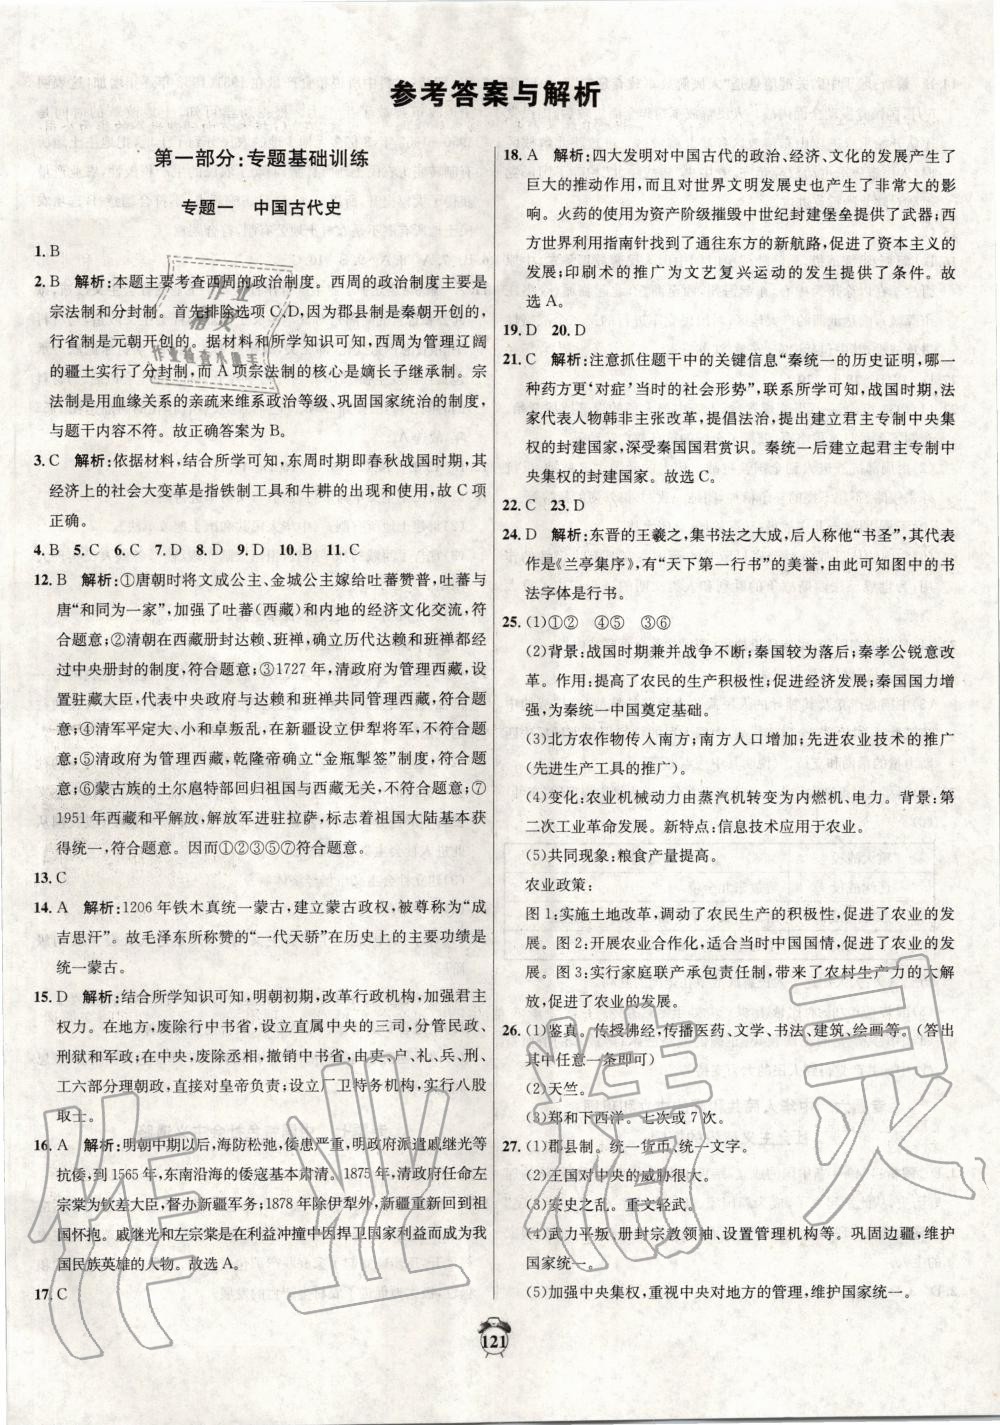 参考答案与解析
第一部分:专题基础训练
专题一　中国古代史
1. B
2. B　解析:本题主要考查西周的政治制度。西周的政治制度是
宗法制和分封制。首先排除选项 C、D,因为郡县制是秦朝开创的,
行省制是元朝开创的。据材料和所学知识可知,西周为管理辽阔
的疆土实行了分封制,而 A 项宗法制的核心是嫡长子继承制。宗
法制是用血缘关系的亲疏来维系政治等级、巩固国家统治的制度,
与题干内容不符。故正确答案为 B。
3. C　解析:依据材料,结合所学可知,东周时期即春秋战国时期,其
经济上的社会大变革是指铁制工具和牛耕的出现和使用,故 C 项
正确。
4. B　5. C　6. C　7. D　8. D　9. D　10. B　11. C
12. B　解析:①唐朝时将文成公主、金城公主嫁给吐蕃赞普,吐蕃与
唐“和同为一家”,加强了吐蕃(西藏)和内地的经济文化交流,符
合题意;②清朝在西藏册封达赖、班禅,确立历代达赖和班禅都经
过中央册封的制度,符合题意;③1727 年,清政府为管理西藏,设
置驻藏大臣,代表中央政府与达赖和班禅共同管理西藏,符合题
意;④清军平定大、小和卓叛乱,在新疆设立伊犁将军,不符合题
意;⑤清政府为管理西藏,乾隆帝确立“金瓶掣签”制度,符合题
意;⑥蒙古族的土尔扈特部回归祖国与西藏无关,不符合题意;⑦
1951 年西藏和平解放,解放军进驻拉萨,标志着祖国大陆基本获
得统一,符合题意。因而①②③⑤⑦符合题意。
13. C
14. A　解析:1206 年铁木真统一蒙古,建立蒙古政权,被尊称为“成
吉思汗”。故毛泽东所称赞的“一代天骄”在历史上的主要功绩是
统一蒙古。
15. D　解析:结合所学知识可知,明朝初期,改革行政机构,加强君主
权力。在地方,废除行中书省,设立直属中央的三司,分管民政、
刑狱和军政;在中央,废除丞相,撤销中书省,由吏、户、礼、兵、刑、
工六部分理朝政,直接对皇帝负责;设立厂卫特务机构,实行八股
取士。
16. A　解析:明朝中期以后,海防松弛,倭患严重,明政府派遣戚继光等
抗倭,到 1565 年,东南沿海的倭寇基本肃清。1875 年,清政府任命左
宗棠为钦差大臣,督办新疆军务;1878 年除伊犁外,新疆重新回到祖
国怀抱。戚继光和左宗棠在利益冲撞中因捍卫国家利益而成为我
国民族英雄的人物。故选 A。
17. C
18. A　解析:四大发明对中国古代的政治、经济、文化的发展产生了
巨大的推动作用,而且对世界文明发展史也产生了非常大的影
响。火药的使用为资产阶级摧毁中世纪封建堡垒提供了武器;西
方世界利用指南针找到了通往东方的新航路,促进了资本主义的
发展;印刷术的推广为文艺复兴运动的发生提供了条件。故
选 A。
19. D　20. D
21. C　解析:注意抓住题干中的关键信息“秦统一的历史证明,哪一
种药方更‘对症’当时的社会形势”,联系所学可知,战国时期,法
家代表人物韩非主张改革,提倡法治,提出建立君主专制中央集
权的封建国家,深受秦国国君赏识。秦统一后建立起君主专制中
央集权的封建国家。故选 C。
22. C　23. D
24. D　解析:东晋的王羲之,集书法之大成,后人称他“书圣”,其代表
作是《兰亭集序》,有“天下第一行书”的美誉,由此可知图中的书
法字体是行书。
25. (1)①②　④⑤　③⑥
(2)背景:战国时期兼并战争不断;秦国较为落后;秦孝公锐意改
革。作用:提高了农民的生产积极性;促进经济发展;秦国国力增
强,为秦统一中国奠定基础。
(3)北方农作物传入南方;南方人口增加;先进农业技术的推广
(先进生产工具的推广)。
(4)变化:农业机械动力由蒸汽机转变为内燃机、电力。背景:第
二次工业革命发展。新特点:信息技术应用于农业。
(5)共同现象:粮食产量提高。
农业政策:
图 1:实施土地改革,调动了农民生产的积极性,促进了农业的发
展。图 2:开展农业合作化,适合当时中国国情,促进了农业的发
展。图 3:实行家庭联产承包责任制,带来了农村生产力的大解
放,促进了农业的发展。
26. (1)鉴真。传授佛经,传播医药、文学、书法、建筑、绘画等。(答出
其中任意一条即可)
(2)天竺。
(3)郑和下西洋。七次或 7 次。
27. (1)郡县制。统一货币、统一文字。
(2)王国对中央的威胁很大。
(3)安史之乱。重文轻武。
(4)武力平叛、册封宗教领袖、设置管理机构等。巩固边疆,维护
国家统一。
(5)加强中央集权,重视中央对地方的管理,维护国家统一。
121
作业精灵
作业
精灵
作业检查小霸王